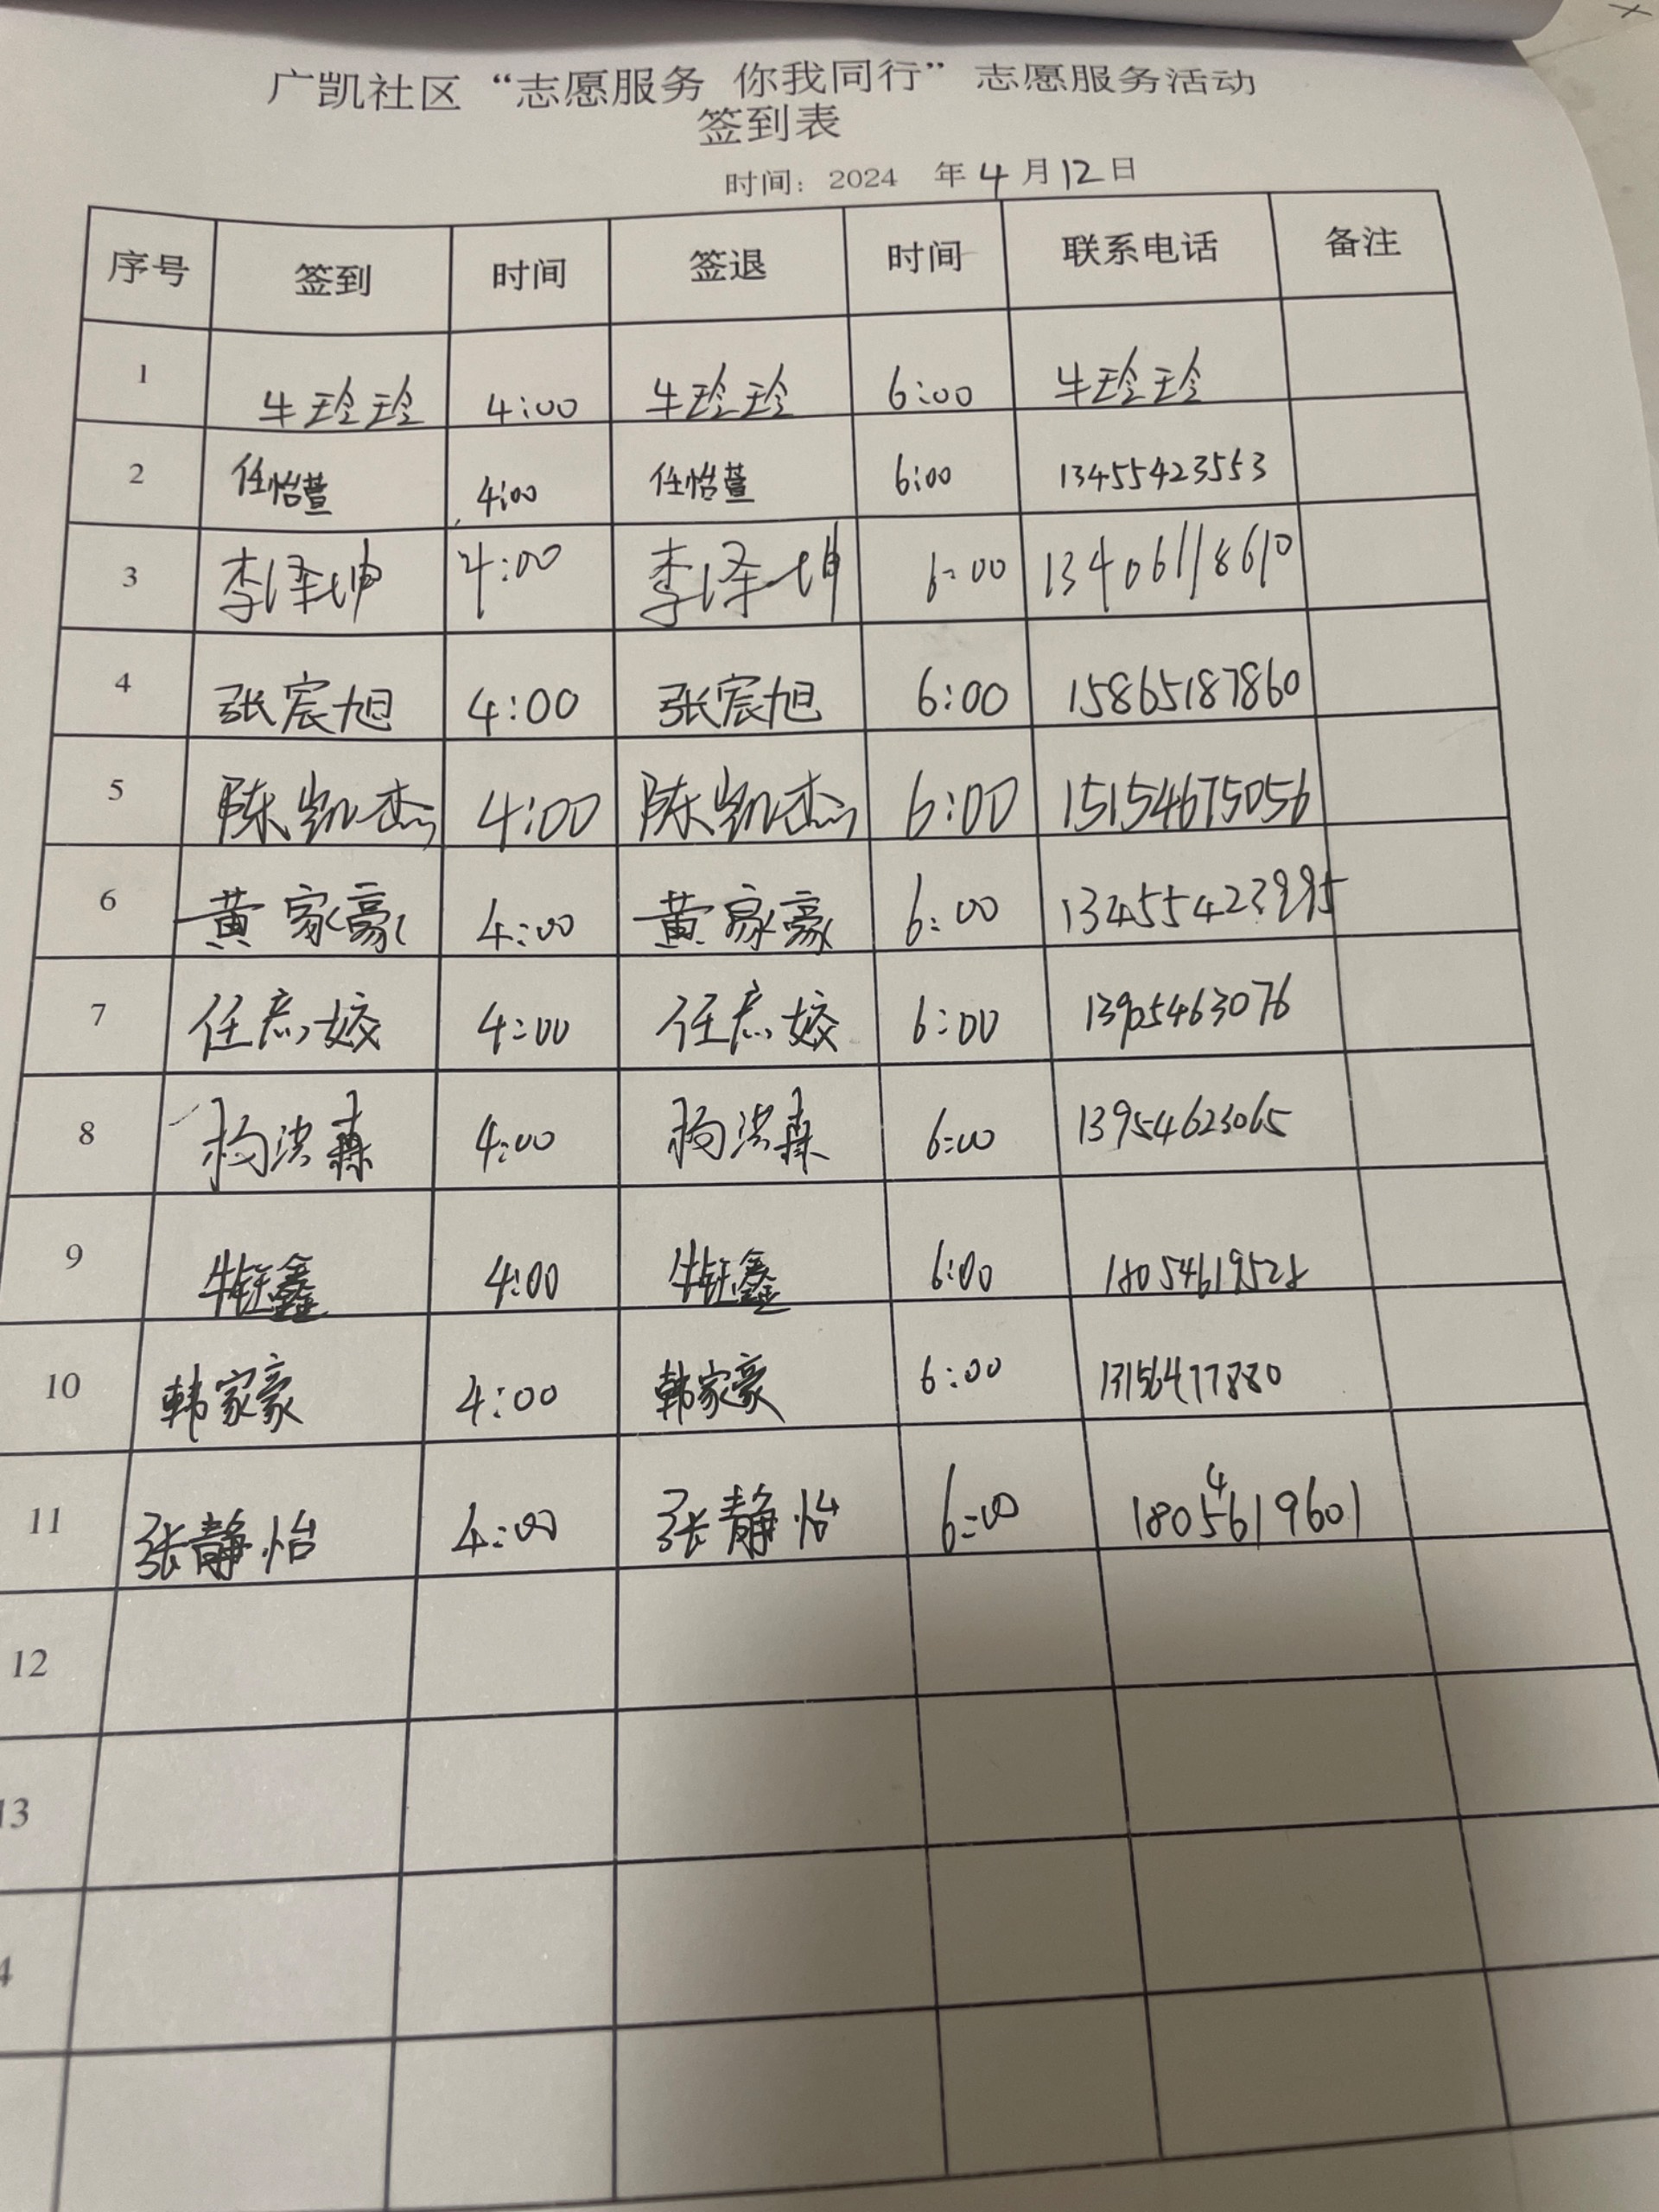 广凯社区“志愿服务 你我同行”志愿服务活动
签到表
时间：2024 年 4 月 12 日
序号 签到 时间 签退 时间 联系电话 备注
1 牛玲玲 4:00 牛玲玲 6:00 牛玲玲
2 任怡萱 4:00 任怡萱 6:00 13455423553
3 李泽坤 4:00 李泽坤 6:00 13406118610
4 张宸旭 4:00 张宸旭 6:00 15865187860
5 陈凯杰 4:00 陈凯杰 6:00 15154675056
6 黄家豪 4:00 黄家豪 6:00 13455423995
7 4:00 6:00 13905463076
8 杨洪森 4:00 杨洪森 6:00 13954623065
9 牛钰鑫 4:00 牛钰鑫 6:00 18054619528
10 韩家豪 4:00 韩家豪 6:00 13156477880
11 张静怡 4:00 张静怡 6:00 18054619601
12
13
4